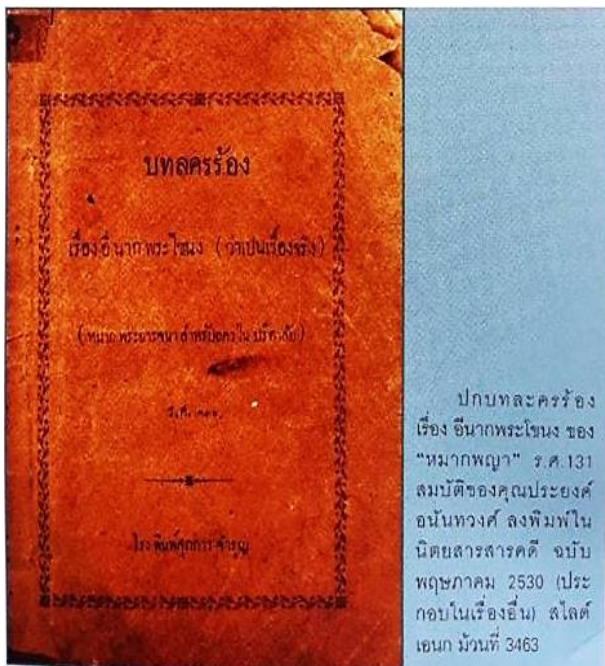 บทลครร้อง
เรื่องอีนากพระโขนง (ว่าเปนเรื่องจริง)
(หมากพระยารจนา สำหรับลครในปรีดาลัย)
โรงพิมพ์ศุภการจำรูญ
ปกบทละครร้อง
เรื่อง อีนากพระโขนง ของ
"หมากพญา" ร.ศ.131
สมบัติของคุณประยงค์
อนันทวงศ์ ลงพิมพ์ใน
นิตยสารสารคดี ฉบับ
พฤษภาคม 2530 (ประ
กอบในเรื่องอื่น) สไลด์
เอนก ม้วนที่ 3463